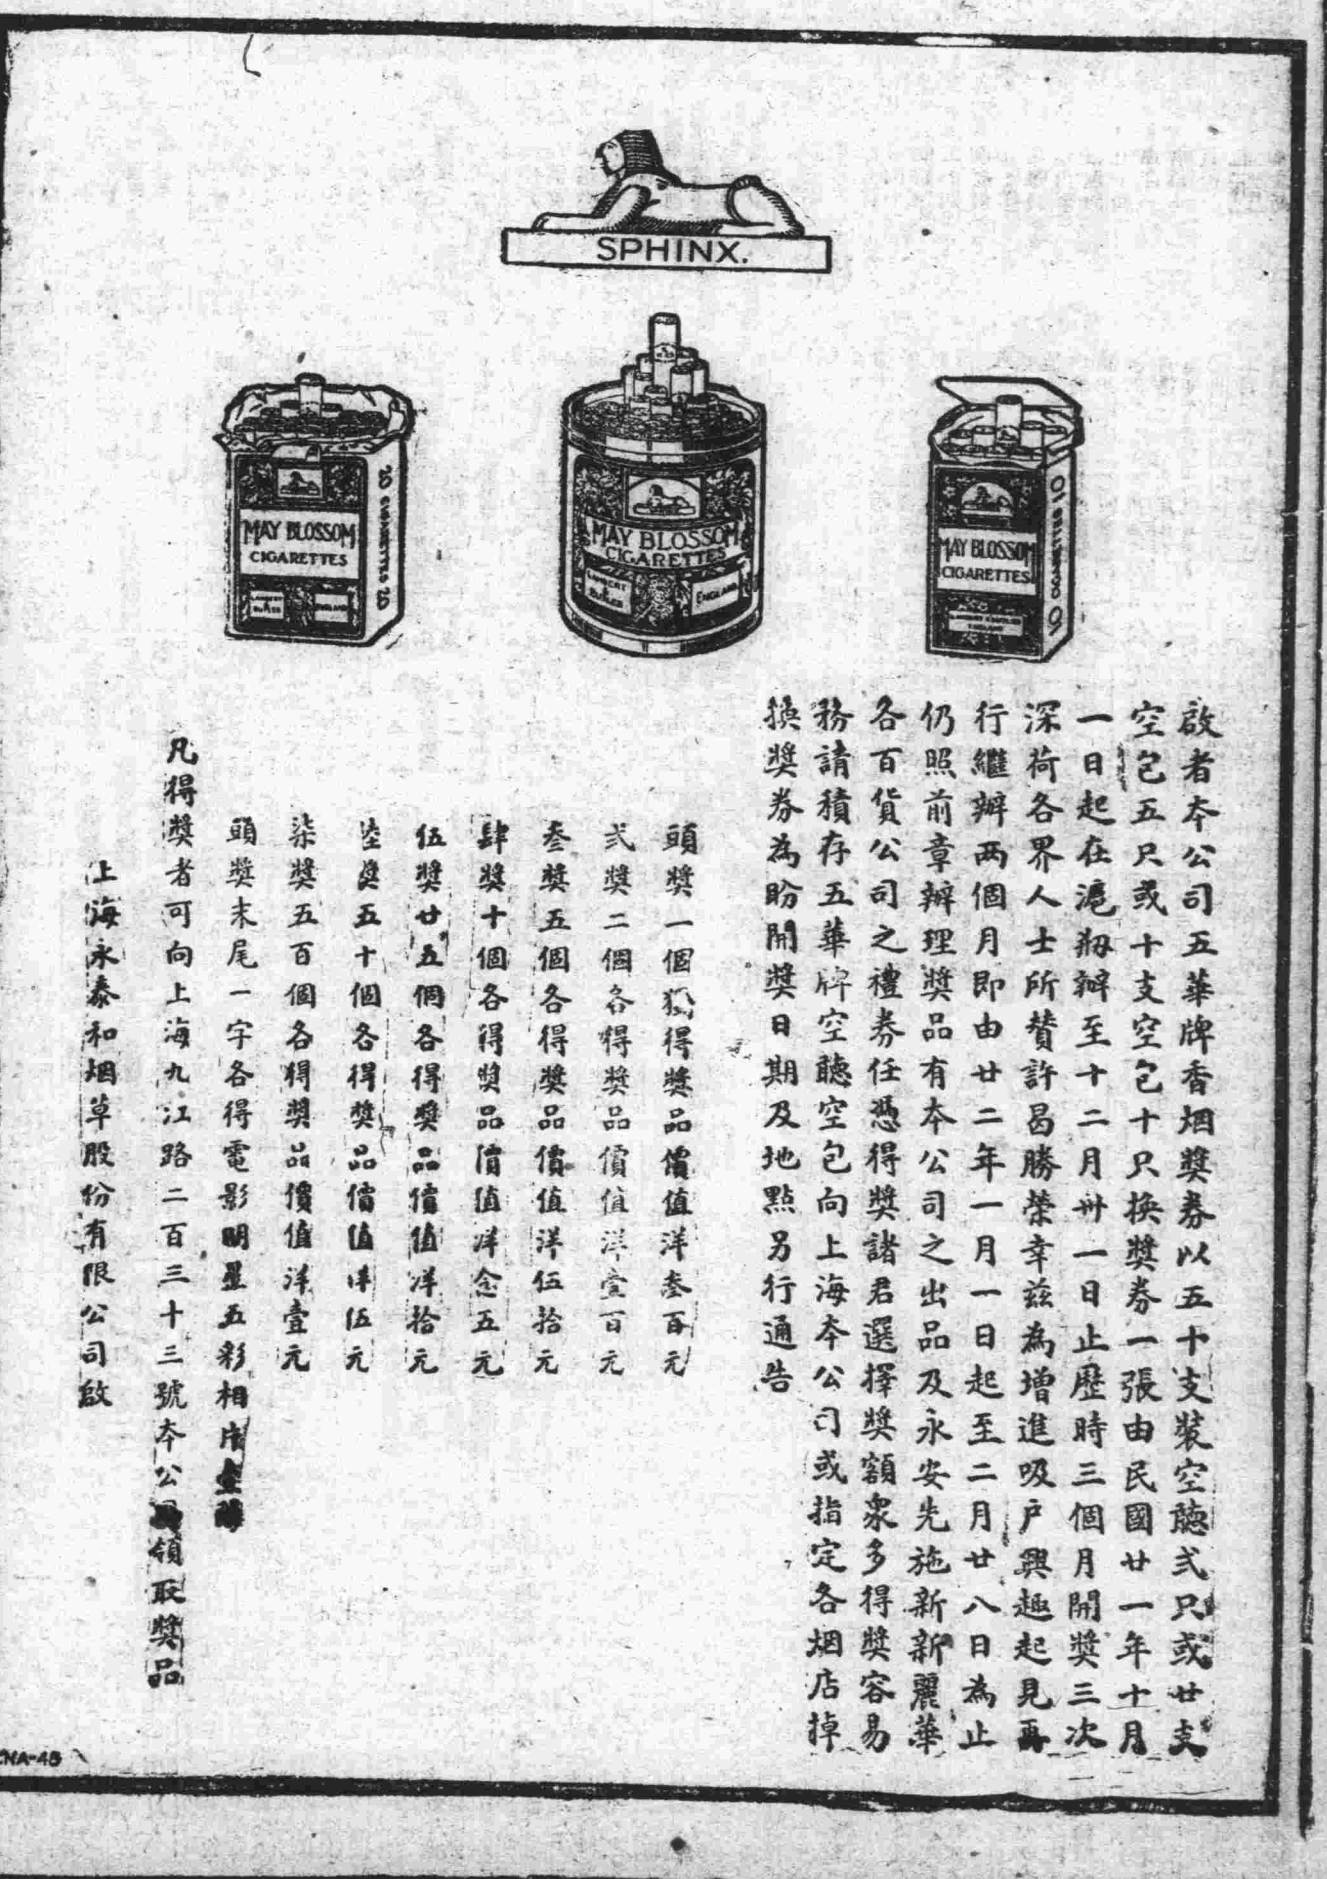 SPHINX.
MAY BLOSSOM
CIGARETTES
LAMBERT
&
BUTLER
ENGLAND
20 CIGARETTES 20
MAY BLOSSOM
CIGARETTES
LAMBERT
&
BUTLER
ENGLAND
MAY BLOSSOM
CIGARETTES
ENGLAND
10 10
啟者本公司五華牌香烟獎券以五十支裝空聽弍只或廿支
空包五只或十支空包十只換獎券一張由民國廿一年十月
一日起在滬刱辦至十二月卅一日止歷時三個月開獎三次
深荷各界人士所贊許曷勝榮幸茲為增進吸戶興趣起見再
行繼辦两個月即由廿二年一月一日起至二月廿八日為止
仍照前章辦理獎品有本公司之出品及永安先施新新麗華
各百貨公司之禮券任憑得獎諸君選擇獎額衆多得獎容易
務請積存五華牌空聽空包向上海本公司或指定各烟店掉
換獎券為盼開獎日期及地點另行通告
頭獎一個獨得獎品價值洋叁百元
弍獎二個各得獎品價值洋壹百元
叁獎五個各得獎品價值洋伍拾元
肆獎十個各得獎品價值洋念五元
伍獎廿五個各得獎品價值洋拾元
陸獎五十個各得獎品價值洋伍元
柒獎五百個各得獎品價值洋壹元
頭獎末尾一字各得電影明星五彩相片
凡得獎者可向上海九江路二百三十三號本公司領取獎品
上海永泰和烟草股份有限公司啟
CNA-48